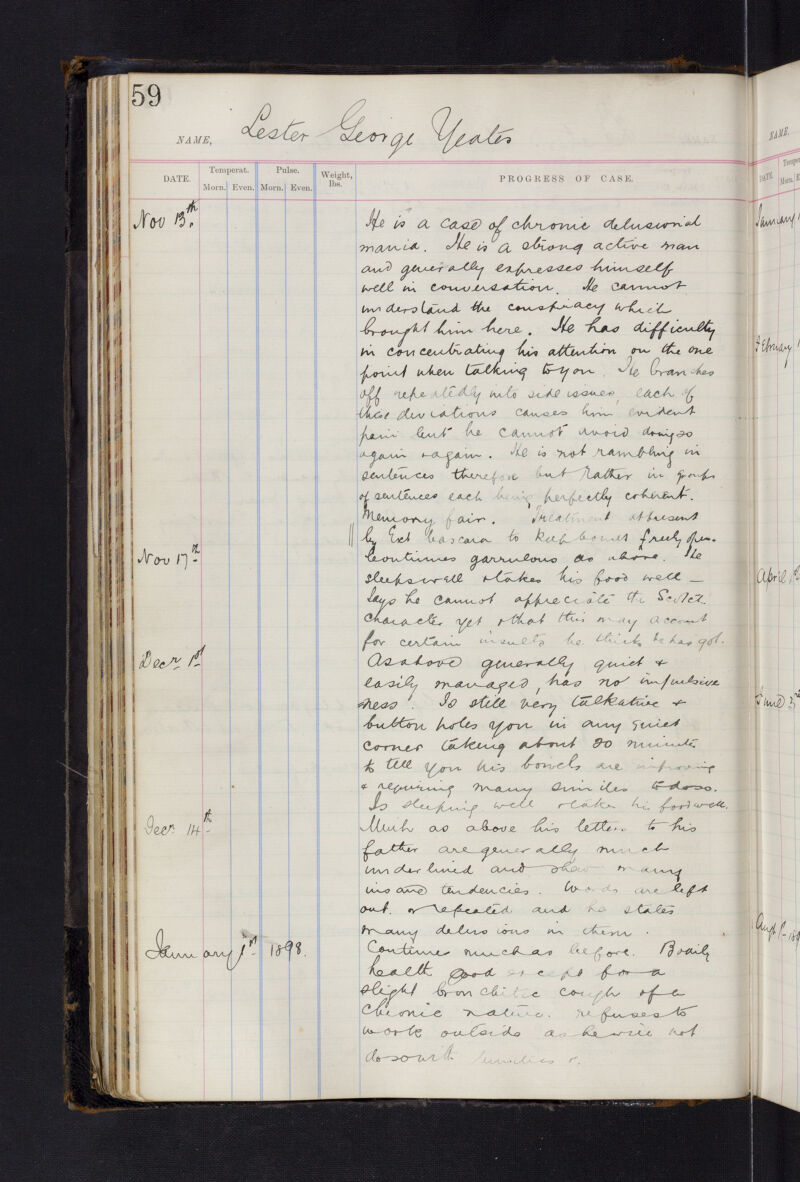 59
NAME, Lester George Yeates
DATE. Temperat. Pulse. Weight, lbs. PROGRESS OF CASE.
Morn. Even. Morn. Even.
Nov 13th. He is a case of chronic delusional
mania. He is a strong active man
and generally expresses himself
well in conversation. He cannot
understand the conspiracy which
brought him here. He has difficulty
in concentrating his attention on the one
point when talking to you. He branches
off repeatedly into side issues, each of
these deviations causes him evident
pain but he cannot avoid doing so
again & again. He is not rambling in
sentences therefore but rather in groups
of sentences each being perfectly coherent.
Memory fair. Treatment at present
by Ext Cascara to keep bowels freely open.
Nov 17th Continues garrulous as above. He
sleeps well & takes his food well —
Says he cannot appreciate the Scotch
character yet & that this may account
for certain insults he thinks he has got.
Decr 1st As above generally quiet &
easily managed, has no impulsive
ness. Is still very talkative &
button holes you in any quiet
corner taking about 20 minutes
to tell you his bowels are improving
& requiring many similes to do so.
Is sleeping well & takes his food well.
Decr 14th Much as above his letters to his
father are generally much
underlined and show many
insane tendencies. Words are left
out or repeated and he states
many delusions in them.
January 1st 1898. Continues much as before. Bodily
health good except for a
slight bronchitic cough of a
chronic nature. refuses to
work outside as he will not
do so with lunatics
NAME,
DATE. Morn.
January
February
April
June 3rd
Augt